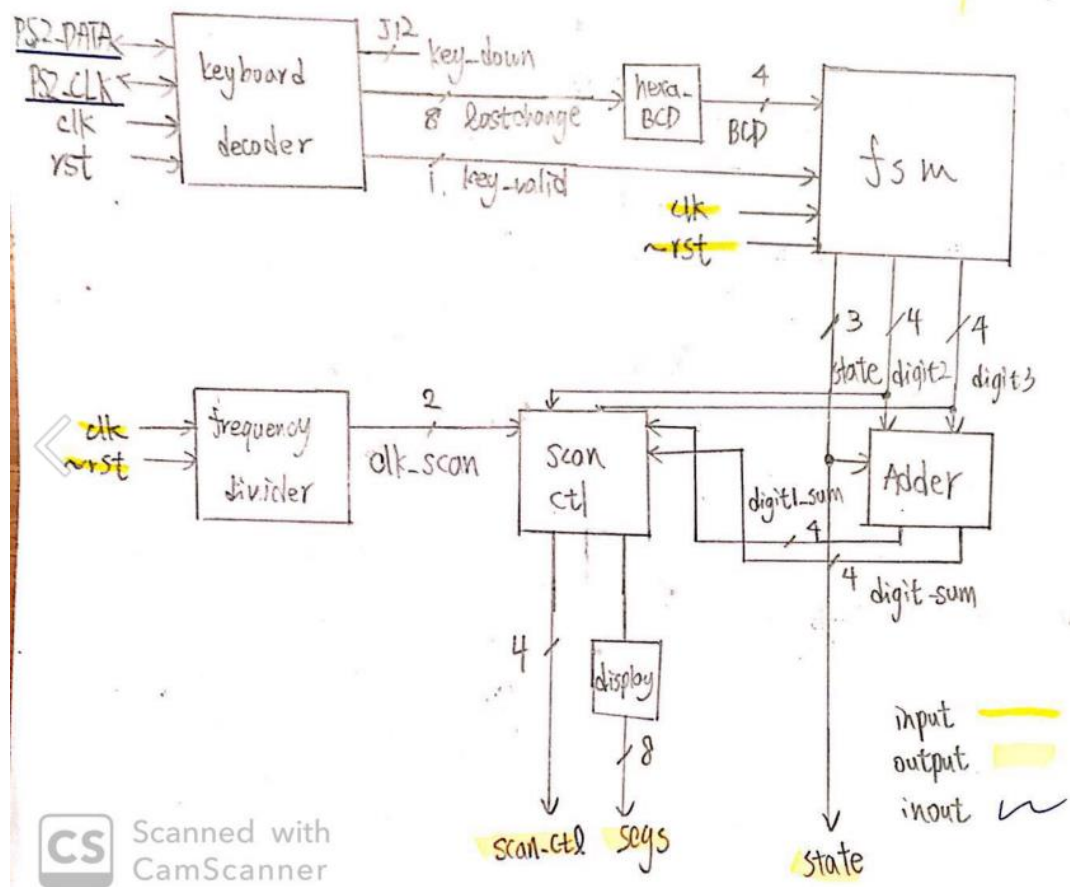 PS2_DATA
PS2_CLK
clk
rst
keyboard
decoder
512
key_down
8 lastchange
1. key_valid
hexa-
BCD
4
BCD
fsm
clk
~rst
3
4
4
state
digit2
digit3
clk
~rst
frequency
divider
2
clk_scan
scan
ctl
Adder
digit1_sum
4
4
digit_sum
4
display
8
scan_ctl
segs
state
input
output
inout
CS
Scanned with
CamScanner